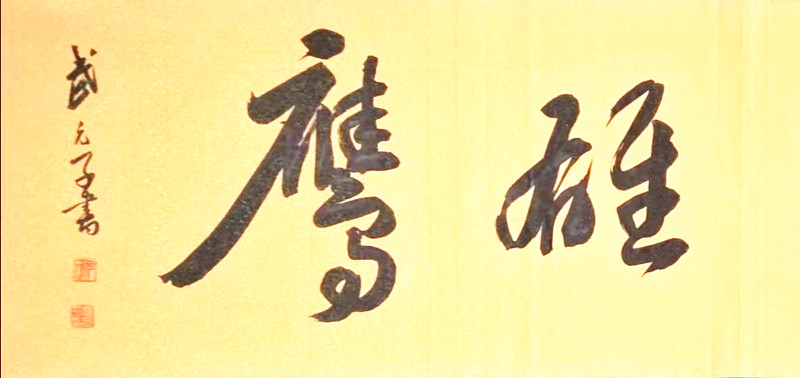 雄鷹
武元子書